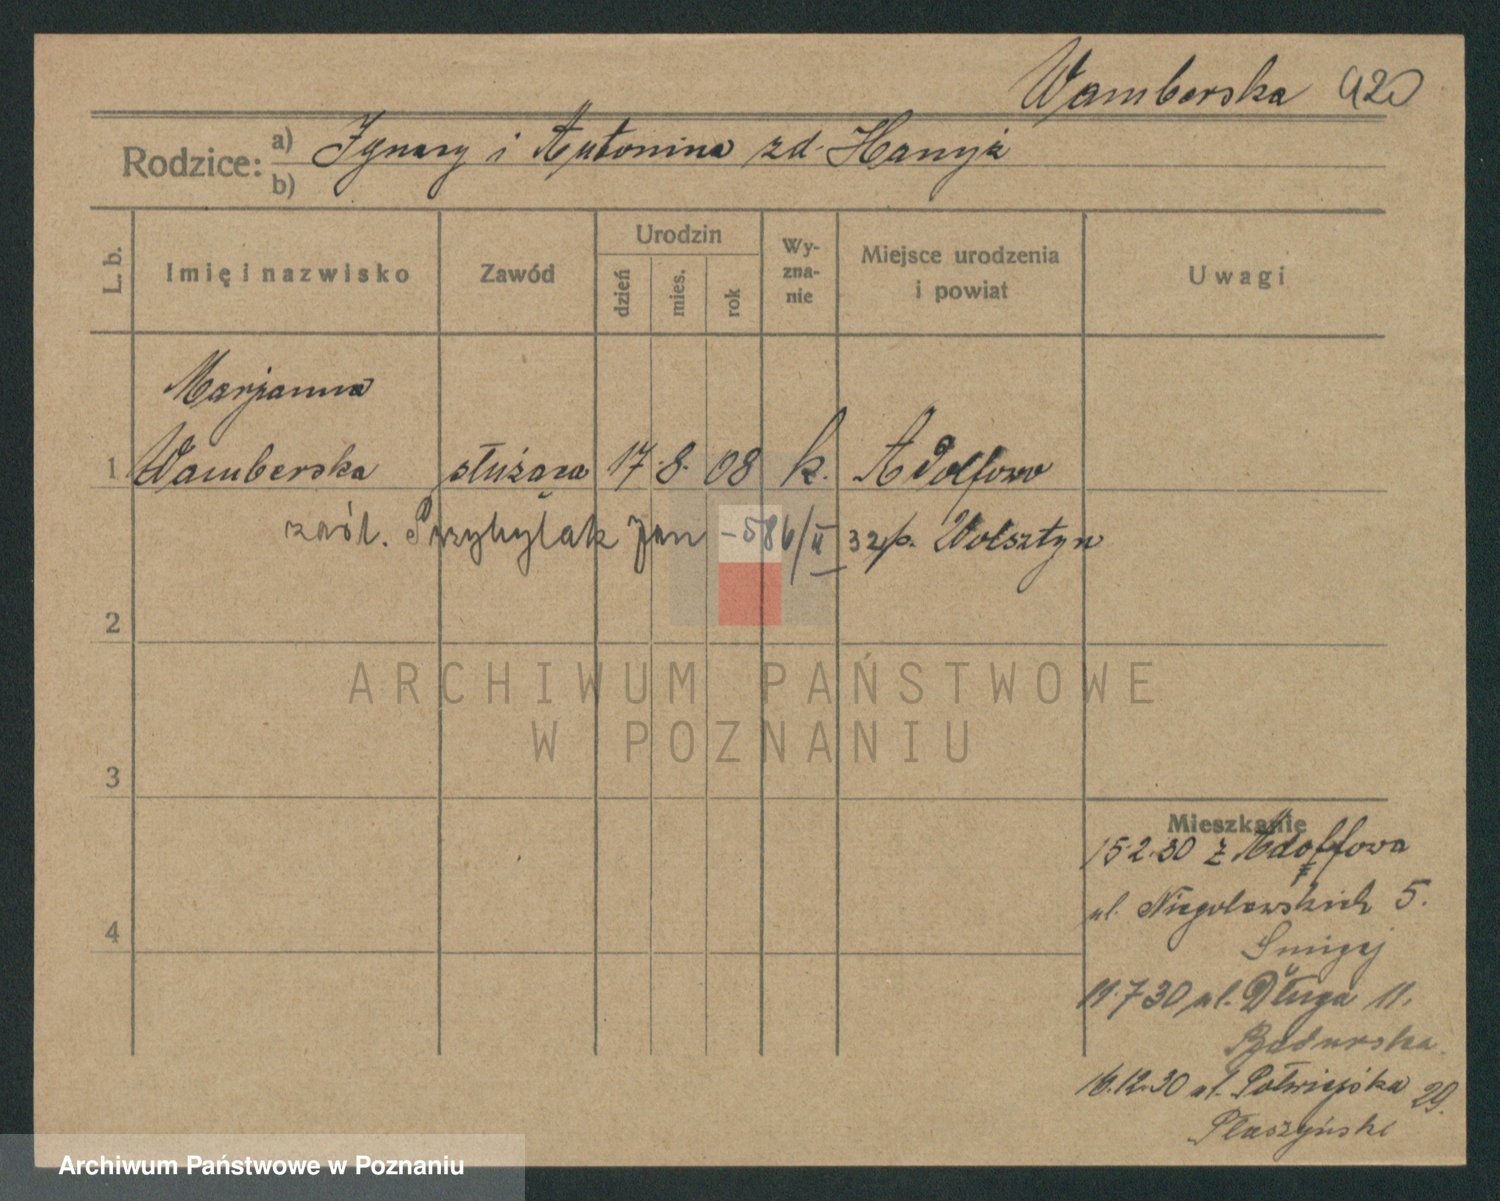 Wamberska 920
Rodzice: a) Ignacy i Antonina zd. Hanyż
b)
L. b. Imię i nazwisko Zawód Urodzin dzień mies. rok Wy-zna-nie Miejsce urodzenia i powiat Uwagi
Marjanna
1 Wamberska służąca 17. 8. 08 k. Adolfowo
zaśl. Przybylak Jan - 586/II 32 p. Wolsztyn
2
ARCHIWUM PAŃSTWOWE
W POZNANIU
3
Mieszkanie
15.2.30 z Adolfowa
ul. Niegolewskich 5.
Śmigaj
4
11.7.30 ul. Długa 11.
Badurska.
16.12.30 ul. Półwiejska 29.
Płaszyński
Archiwum Państwowe w Poznaniu